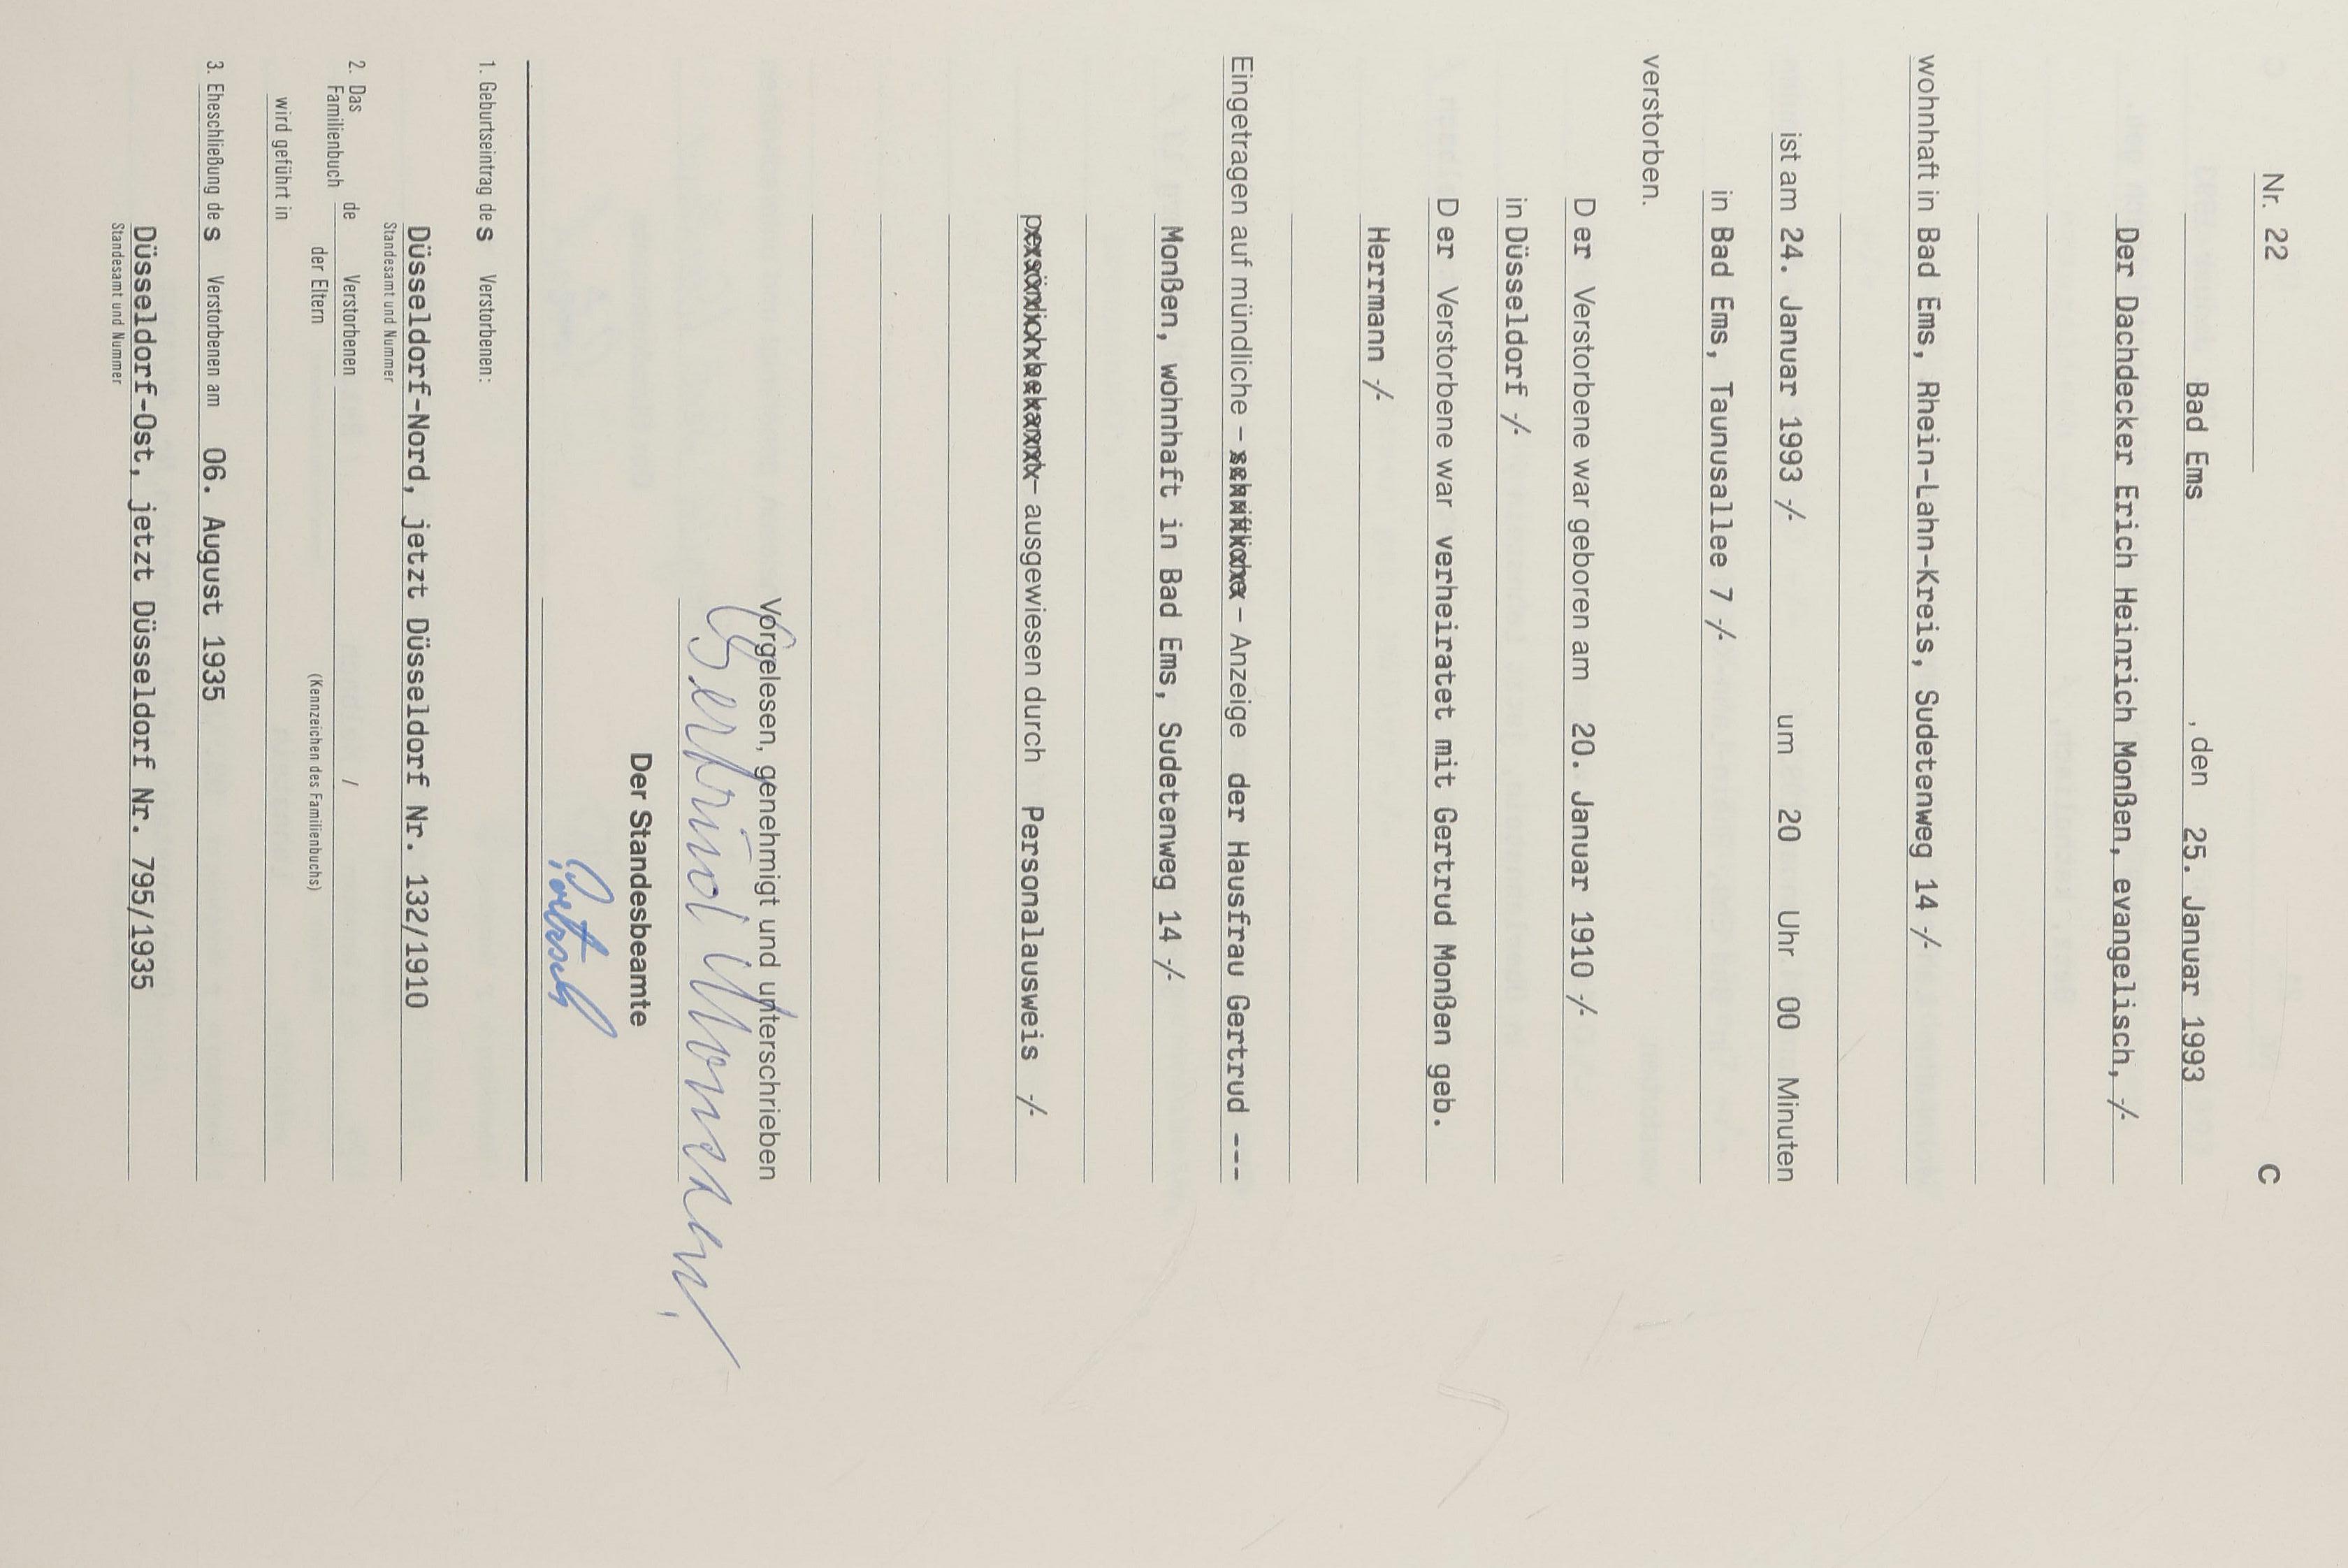 C
Nr. 22
Bad Ems , den 25. Januar 1993
Der Dachdecker Erich Heinrich Monßen, evangelisch, -/-
wohnhaft in Bad Ems, Rhein-Lahn-Kreis, Sudetenweg 14 -/-
ist am 24. Januar 1993 -/- um 20 Uhr 00 Minuten
in Bad Ems, Taunusallee 7 -/-
verstorben.
D er Verstorbene war geboren am 20. Januar 1910 -/-
in Düsseldorf -/-
D er Verstorbene war verheiratet mit Gertrud Monßen geb.
Herrmann -/-
Eingetragen auf mündliche – schriftliche – Anzeige der Hausfrau Gertrud ---
Monßen, wohnhaft in Bad Ems, Sudetenweg 14 -/-
persönlich bekannt – ausgewiesen durch Personalausweis -/-
Vorgelesen, genehmigt und unterschrieben
Gertrud Monssen
Der Standesbeamte
1. Geburtseintrag de s Verstorbenen:
Düsseldorf-Nord, jetzt Düsseldorf Nr. 132/1910
Standesamt und Nummer
2. Das Familienbuch de Verstorbenen /
der Eltern (Kennzeichen des Familienbuchs)
wird geführt in
3. Eheschließung de s Verstorbenen am 06. August 1935
Düsseldorf-Ost, jetzt Düsseldorf Nr. 795/1935
Standesamt und Nummer